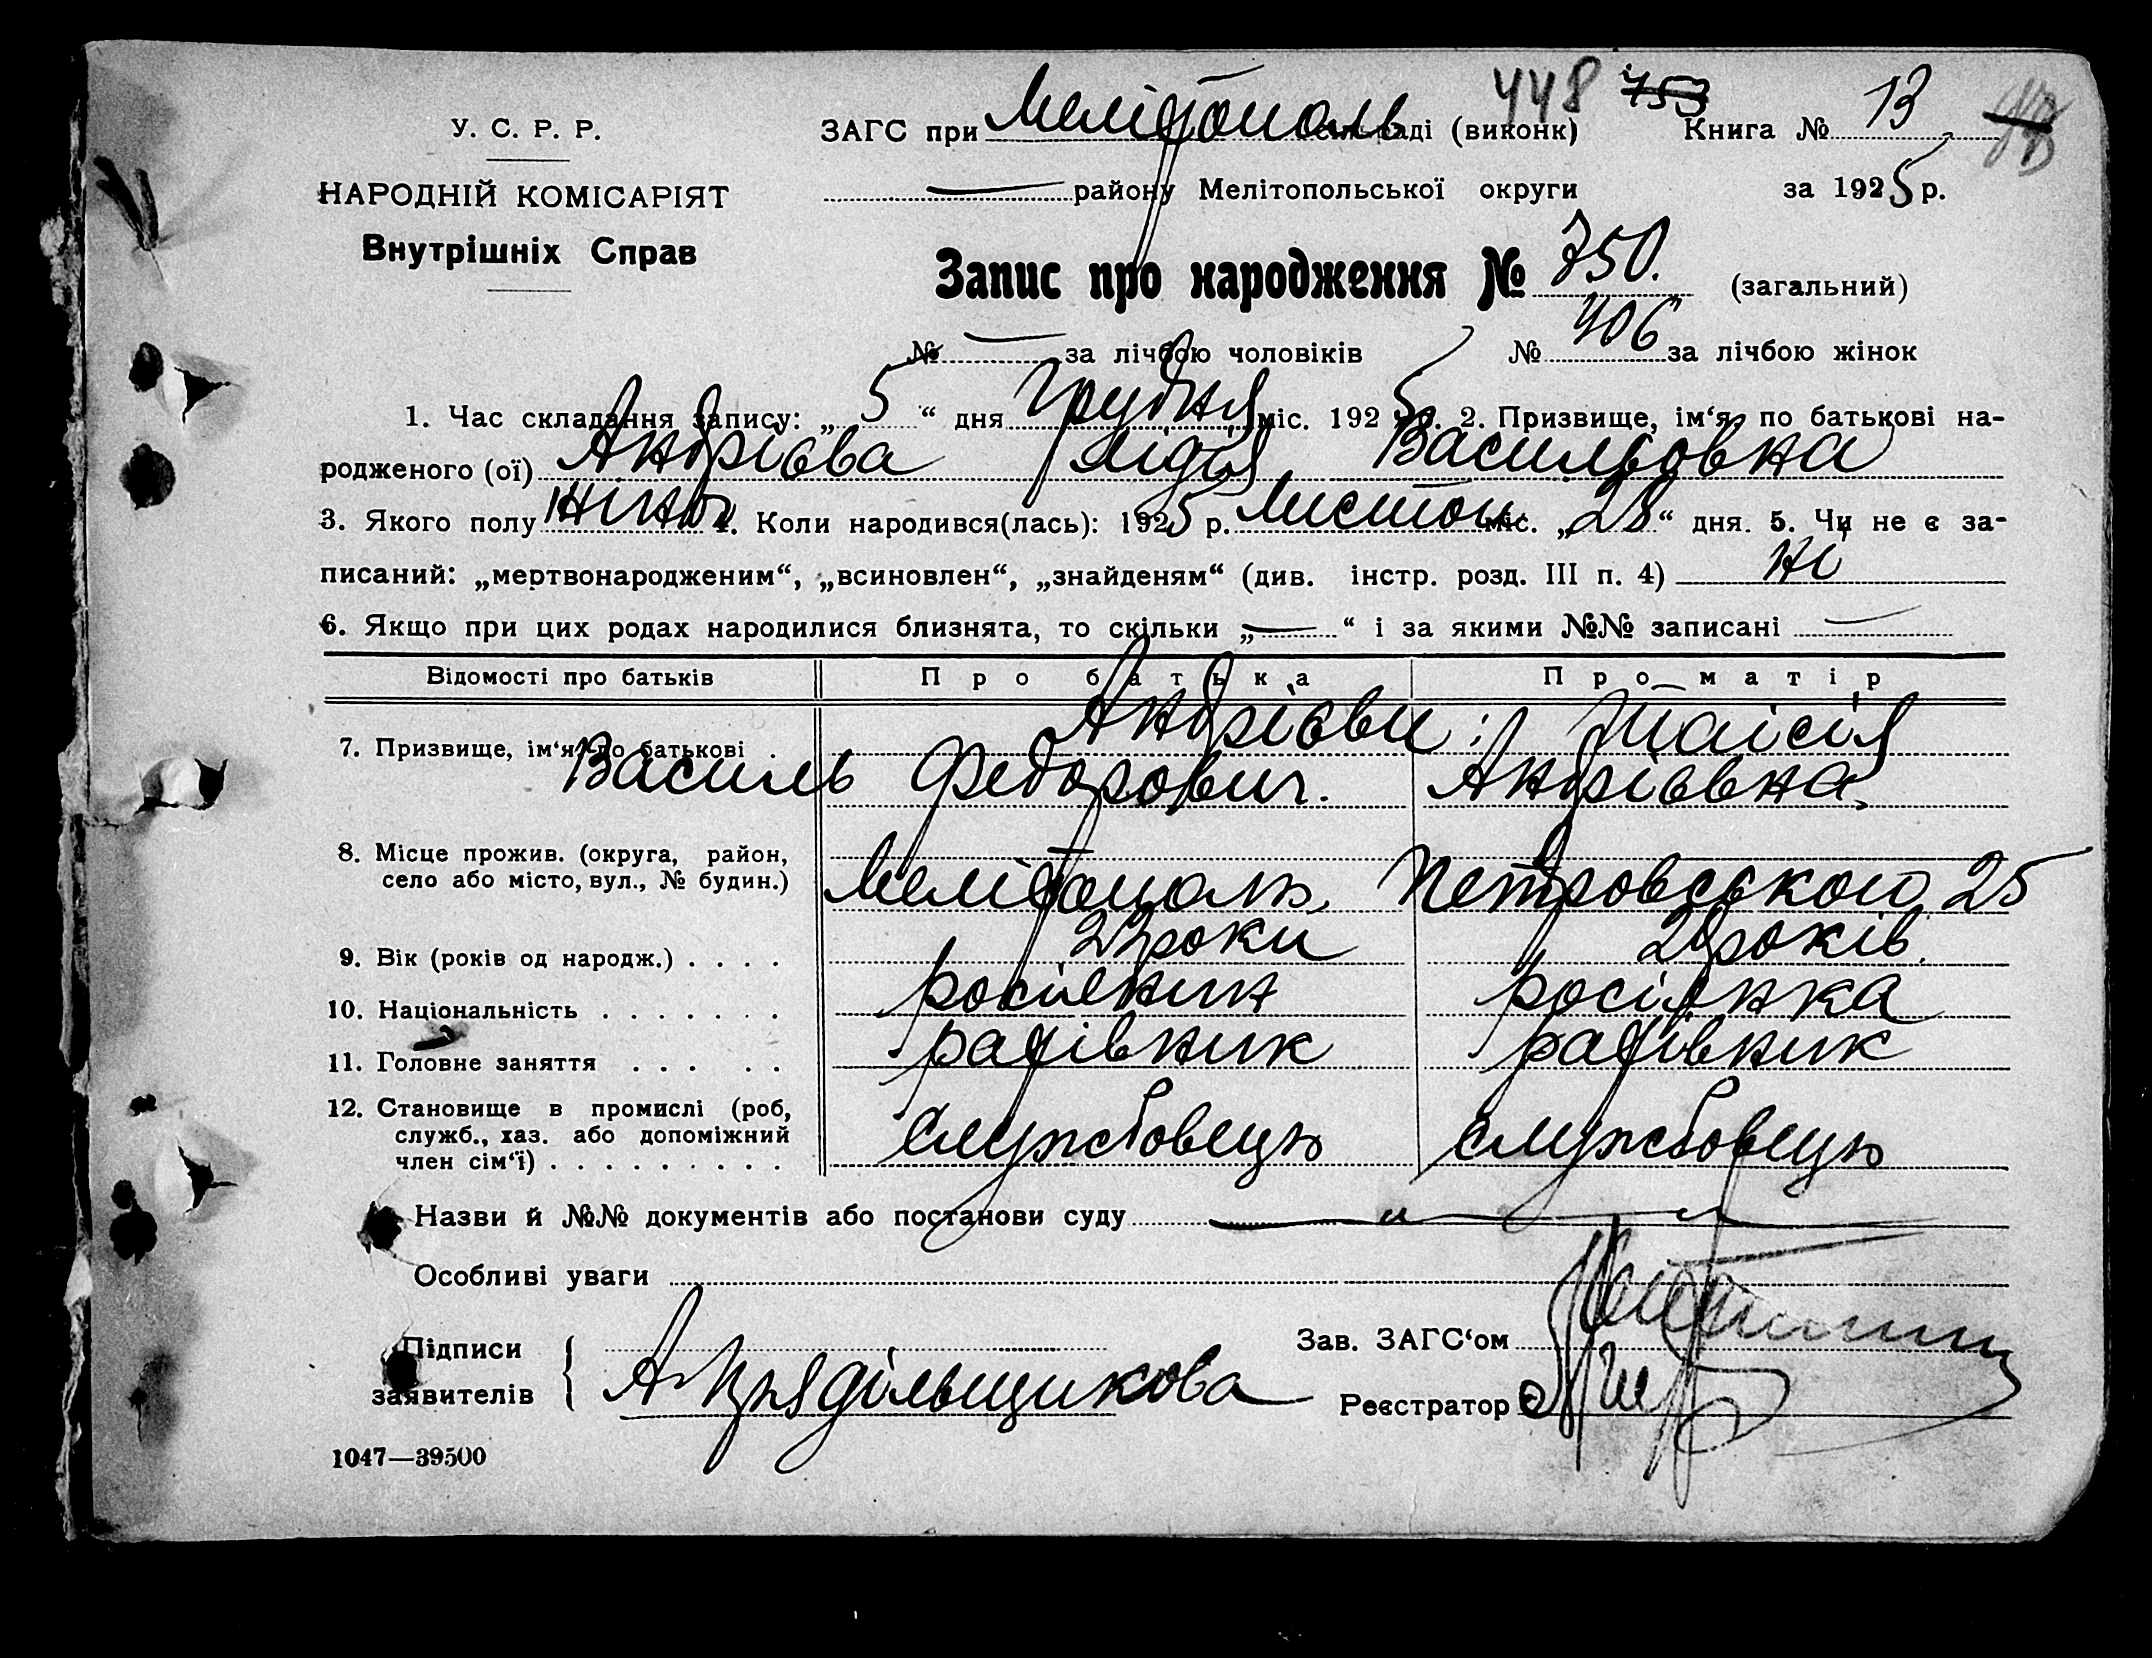 448 753
У. С. Р. Р. ЗАГС при Мелітополь сільраді (виконк) Книга № 13
НАРОДНІЙ КОМІСАРІЯТ — району Мелітопольської округи за 1925 р.
Внутрішніх Справ
Запис про народження № 750. (загальний)
№ — за лічбою чоловіків № 406 за лічбою жінок
1. Час складання запису: „ 5 “ дня Грудня міс. 1925 р. 2. Призвище, ім‘я, по батькові на-
родженого (ої) Андрієва Лідія Васильовна
3. Якого полу жіноч 4. Коли народився(лась): 1925 р. Листоп міс. „ 28 “ дня. 5. Чи не є за-
писаний: „мертвонародженим“, „всиновлен“, „знайденям“ (див. інстр. розд. III п. 4) ні
6. Якщо при цих родах народилися близнята, то скільки „ — “ і за якими №№ записані —
Відомості про батьків Про батька Про матір
7. Призвище, ім‘я, по батькові . Андрієви: Таісія
Василь Федорович. Андріевна.
8. Місце прожив. (округа, район,
село або місто, вул., № будин.) Мелітополь, Петровського 25
9. Вік (років од народж.) . . . . роки років.
10. Національність . . . . . . . росіянин росіянка
11. Головне заняття . . . . . рахівник рахівник
12. Становище в промислі (роб,
служб., хаз. або допоміжний
член сім‘ї) . . . . . . . . . службовець службовець
Назви й №№ документів або постанови суду — „ — „ —
Особливі уваги
Підписи
заявителів А Прядільщикова
Зав. ЗАГС‘ом
Реєстратор
1047—39500